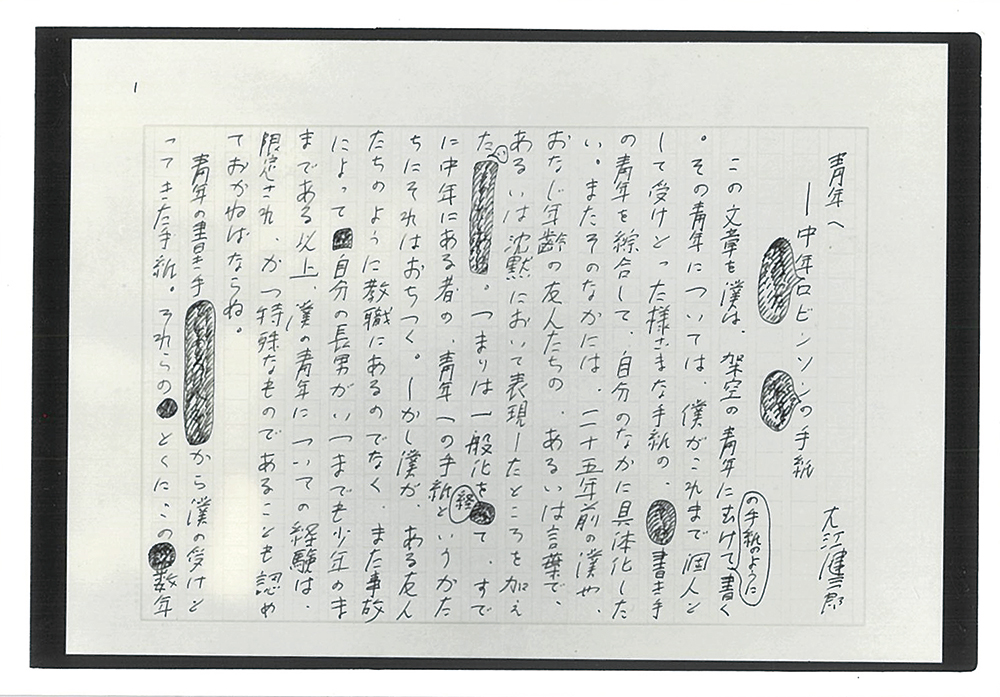 1
青年へ
—中年ロビンソンの手紙
大江健三郎
この文章を僕は、架空の青年にむけての手紙のように書く
。その青年については、僕がこれまで個人と
して受けとった様ざまな手紙の、書き手
の青年を綜合して、自分のなかに具体化した
い。またそのなかには、二十五年前の僕や、
おなじ年齢の友人たちの、あるいは言葉で、
あるいは沈黙において表現したところを加え
たい。つまりは一般化を経て、すで
に中年にある者の、青年への手紙というかた
ちにそれはおちつく。しかし僕が、ある友人
たちのように教職にあるのでなく、また事故
によって自分の長男がいつまでも少年のま
まである以上、僕の青年についての経験は、
限定され、かつ特殊なものであることも認め
ておかねばならぬ。
青年の書き手から僕の受けと
ってきた手紙。それらのとくにこの数年